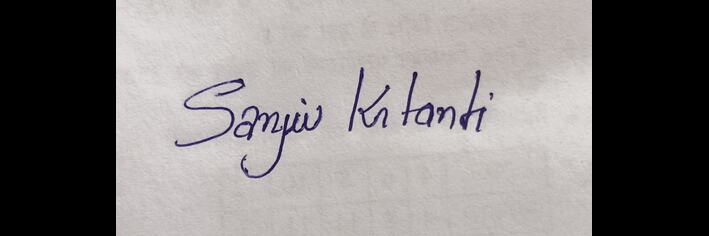 Sanjiv Kitandi